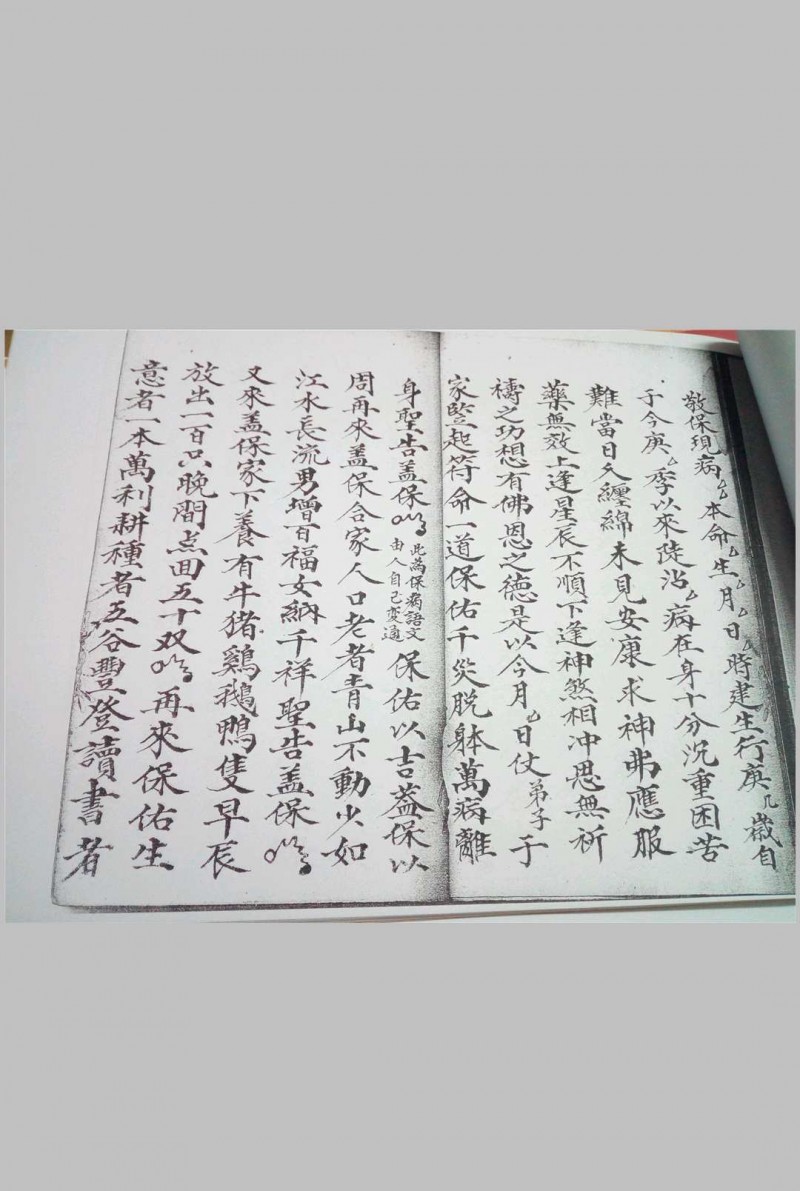 敬保現病厶本命厶生厶月厶日厶時建生行庚几歲自
于今庚厶季以來陡沾厶病在身十分沉重困苦
難當日久纏綿未見安康求神弗應服
藥無效上逢星辰不順下逢神煞相冲思無祈
禱之功想有佛恩之德是以今月厶日仗弟子于
家竪起符命一道保佑千災脱躰萬病離
身聖告盖保
此為保病語文
由人自己变通
保佑以吉蓋保以
周再來盖保合家人口老者青山不動少如
江水長流男增百福女納千祥聖告盖保
又來盖保家下養有牛猪鷄鵝鴨隻早辰
放出一百只晚間点回五十双再來保佑生
意者一本萬利耕種者五谷豐登讀書者